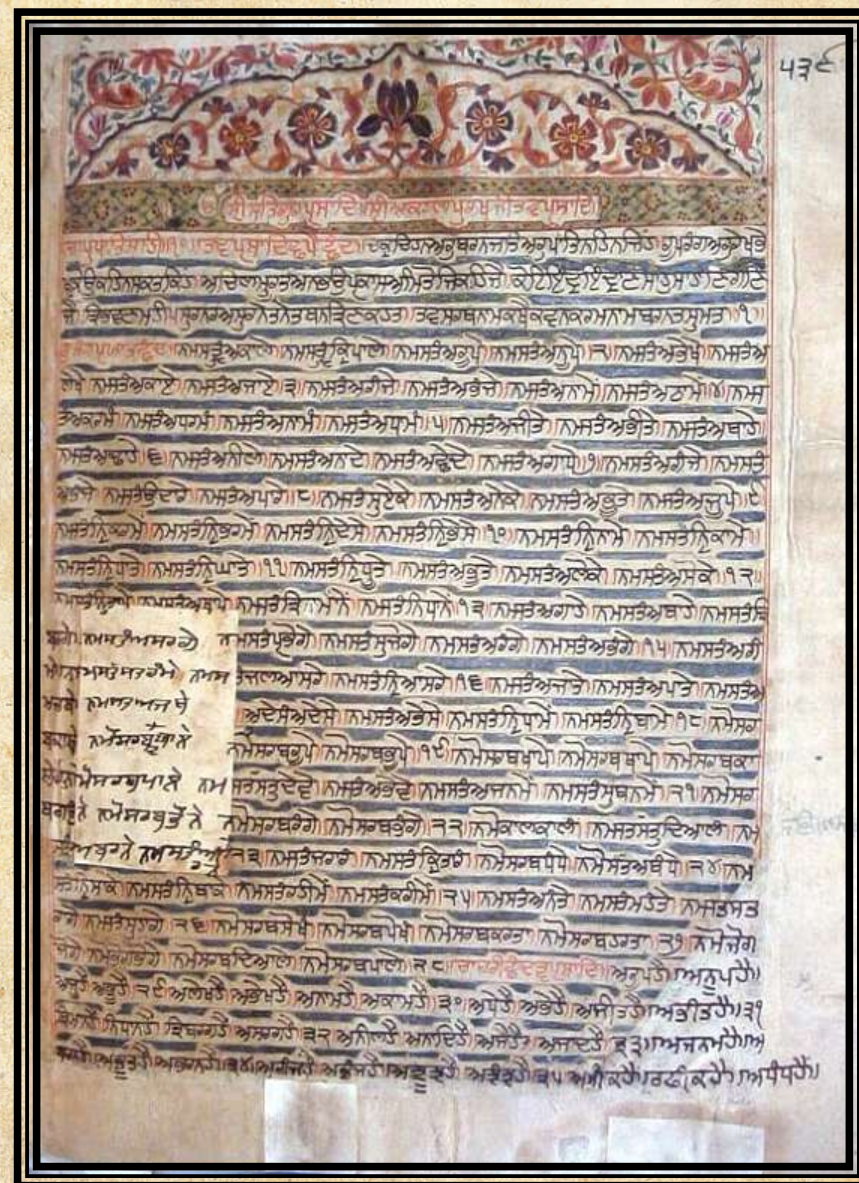 ੫੩੯
ੴ ਸ੍ਰੀ ਸਤਿਗੁਰਪ੍ਰਸਾਦਿ॥ ਸ੍ਰੀ ਅਕਾਲਪੁਰਖ
ਤਵਪ੍ਰਸਾਦਿ ਛਪੈ ਛੰਦ॥ ਚਕ੍ਰਚਿਹਨਅਰੁਬਰਨਜਾਤਿਅਰੁਪਾਤਿਨਹਿਨਜਿਹ॥ ਰੂਪਰੰਗਅਰੁਰੇਖਭੇ
ਅਚਲਮੂਰਤਿਅਨਭਉਪ੍ਰਕਾਸਅਮਿਤੋਜਿਕਹਿਜੈ॥ ਕੋਟਿਇੰਦ੍ਰਇੰਦ੍ਰਾਣ
ਤ੍ਰਿਭਵਣਮਹੀਪਸੁਰਨਰਅਸੁਰਨੇਤਨੇਤਬਨਤ੍ਰਿਣਕਹਤ॥ ਤਵਸਰਬਨਾਮਕਥੈਕਵਨਕਰਮਨਾਮਬਰਨਤਸੁਮਤ॥੧॥
ਭੁਜੰਗਪ੍ਰਯਾਤਛੰਦ॥ ਨਮਸਤ੍ਵੰਅਕਾਲੇ॥ ਨਮਸਤ੍ਵੰਕ੍ਰਿਪਾਲੇ॥ ਨਮਸਤੰਅਰੂਪੇ॥ ਨਮਸਤੰਅਨੂਪੇ॥੨॥ ਨਮਸਤੰਅਭੇਖੇ॥ ਨਮਸਤੰਅ
ਲੇਖੇ॥ ਨਮਸਤੰਅਕਾਏ॥ ਨਮਸਤੰਅਜਾਏ॥੩॥ ਨਮਸਤੰਅਗੰਜੇ॥ ਨਮਸਤੰਅਭੰਜੇ॥ ਨਮਸਤੰਅਨਾਮੇ॥ ਨਮਸਤੰਅਠਾਮੇ॥੪॥ ਨਮਸ
ਤੰਅਕਰਮੰ॥ ਨਮਸਤੰਅਧਰਮੰ॥ ਨਮਸਤੰਅਨਾਮੰ॥ ਨਮਸਤੰਅਧਾਮੰ॥੫॥ ਨਮਸਤੰਅਜੀਤੇ॥ ਨਮਸਤੰਅਭੀਤੇ॥ ਨਮਸਤੰਅਬਾਹੇ॥
ਨਮਸਤੰਅਢਾਹੇ॥੬॥ ਨਮਸਤੰਅਨੀਲੇ॥ ਨਮਸਤੰਅਨਾਦੇ॥ ਨਮਸਤੰਅਛੇਦੇ॥ ਨਮਸਤੰਅਗਾਧੇ॥੭॥ ਨਮਸਤੰਅਗੰਜੇ॥ ਨਮਸਤੰ
ਅਭੰਜੇ॥ ਨਮਸਤੰਉਦਾਰੇ॥ ਨਮਸਤੰਅਪਾਰੇ॥੮॥ ਨਮਸਤੰਸੁਏਕੇ॥ ਨਮਸਤੰਅਨੇਕੇ॥ ਨਮਸਤੰਅਭੂਤੇ॥ ਨਮਸਤੰਅਜੂਪੇ॥੯॥
ਨਮਸਤੰਨ੍ਰਿਕਰਮੇ॥ ਨਮਸਤੰਨ੍ਰਿਭਰਮੇ॥ ਨਮਸਤੰਨ੍ਰਿਦੇਸੇ॥ ਨਮਸਤੰਨ੍ਰਿਭੇਸੇ॥੧੦॥ ਨਮਸਤੰਨ੍ਰਿਨਾਮੇ॥ ਨਮਸਤੰਨ੍ਰਿਕਾਮੇ॥
ਨਮਸਤੰਨ੍ਰਿਧਾਤੇ॥ ਨਮਸਤੰਨ੍ਰਿਘਾਤੇ॥੧੧॥ ਨਮਸਤੰਨ੍ਰਿਧੂਤੇ॥ ਨਮਸਤੰਅਭੂਤੇ॥ ਨਮਸਤੰਅਲੋਕੇ॥ ਨਮਸਤੰਅਸੋਕੇ॥੧੨॥
ਨਮਸਤੰਨ੍ਰਿਤਾਪੇ॥ ਨਮਸਤੰਅਥਾਪੇ॥ ਨਮਸਤੰਤ੍ਰਿਮਾਨੇ॥ ਨਮਸਤੰਨਿਧਾਨੇ॥੧੩॥ ਨਮਸਤੰਅਗਾਹੇ॥ ਨਮਸਤੰਅਬਾਹੇ॥ ਨਮਸਤੰਤ੍ਰਿ
ਬਰਗੇ॥ ਨਮਸਤੰਅਸਰਗੇ॥ ਨਮਸਤੰਪ੍ਰਭੋਗੇ॥ ਨਮਸਤੰਸੁਜੋਗੇ॥ ਨਮਸਤੰਅਰੰਗੇ॥ ਨਮਸਤੰਅਭੰਗੇ॥੧੫॥ ਨਮਸਤੰਅਗੰ
ਨਮਸਤੰਜਲਾਸਰੇ॥ ਨਮਸਤੰਨਿਰਾਸਰੇ॥੧੬॥ ਨਮਸਤੰਅਜਾਤੇ॥ ਨਮਸਤੰਅਪਾਤੇ॥ ਨਮਸਤੰਅ
ਅਦੇਸੰਅਦੇਸੇ॥ ਨਮਸਤੰਅਭੇਸੇ॥ ਨਮਸਤੰਨ੍ਰਿਧਾਮੇ॥ ਨਮਸਤੰਨ੍ਰਿਬਾਮੇ॥੧੮॥ ਨਮੋਸਰ
ਨਮੋਸਰਬਰੂਪੇ॥ ਨਮੋਸਰਬਭੂਪੇ॥੧੯॥ ਨਮੋਸਰਬਖਾਪੇ॥ ਨਮੋਸਰਬਥਾਪੇ॥ ਨਮੋਸਰਬਕਾ
ਨਮੋਸਰਬਪਾਲੇ॥ ਨਮਸਤੰਸਤੁਦੇਵੈ॥ ਨਮਸਤੰਅਭੇਵੈ॥ ਨਮਸਤੰਅਜਨਮੇ॥ ਨਮਸਤੰਸੁਬਨਮੇ॥੨੧॥ ਨਮੋਸਰ
ਬਗਉਨੇ॥ ਨਮੋਸਰਬਭਉਨੇ॥ ਨਮੋਸਰਬਰੰਗੇ॥ ਨਮੋਸਰਬਭੰਗੇ॥੨੨॥ ਨਮੋਕਾਲਕਾਲੇ॥ ਨਮਸਤੰਸਤੁਦਿਆਲੇ॥ ਨਮ
੨੩॥ ਨਮਸਤੰਜਰਾਰੰ॥ ਨਮਸਤੰਕ੍ਰਿਤਾਰੰ॥ ਨਮੋਸਰਬਧੰਧੇ॥ ਨਮੋਸਤੰਅਬੰਧੇ॥੨੪॥ ਨਮ
ਸਤੰਨ੍ਰਿਸਾਕੇ॥ ਨਮਸਤੰਨ੍ਰਿਬਾਕੇ॥ ਨਮਸਤੰਰਹੀਮੇ॥ ਨਮਸਤੰਕਰੀਮੇ॥੨੫॥ ਨਮਸਤੰਅਨੰਤੇ॥ ਨਮਸਤੰਮਹੰਤੇ॥ ਨਮਸਤਸਤ
ਰਾਗੇ॥ ਨਮਸਤੰਸੁਹਾਗੇ॥੨੬॥ ਨਮੋਸਰਬਸੋਖੰ॥ ਨਮੋਸਰਬਪੋਖੰ॥ ਨਮੋਸਰਬਕਰਤਾ॥ ਨਮੋਸਰਬਹਰਤਾ॥੨੭॥ ਨਮੋਜੋਗ
ਜੋਗੇ॥ ਨਮੋਭੋਗਭੋਗੇ॥ ਨਮੋਸਰਬਦਿਆਲੇ॥ ਨਮੋਸਰਬਪਾਲੇ॥੨੮॥ ਚਾਚਰੀਛੰਦਤ੍ਵਪ੍ਰਸਾਦਿ॥ ਅਰੂਪਹੈਂ॥ ਅਨੂਪਹੈਂ॥
ਅਜੂਹੈਂ॥ ਅਭੂਹੈਂ॥੨੯॥ ਅਲੇਖਹੈਂ॥ ਅਭੇਖਹੈਂ॥ ਅਨਾਮਹੈਂ॥ ਅਕਾਮਹੈਂ॥੩੦॥ ਅਧੇਹੈਂ॥ ਅਭੇਹੈਂ॥ ਅਜੀਤਹੈਂ॥ ਅਭੀਤਹੈਂ॥੩੧
ਤ੍ਰਿਮਾਨਹੈਂ॥ ਨਿਧਾਨਹੈਂ॥ ਤ੍ਰਿਬਰਗਹੈਂ॥ ਅਸਰਗਹੈਂ॥੩੨॥ ਅਨੀਲਹੈਂ॥ ਅਨਾਦਿਹੈਂ॥ ਅਜੇਹੈਂ॥ ਅਜਾਦਹੈਂ॥੩੩॥ ਅਜਨਮਹੈਂ॥ ਅ
ਬਰਨਹੈਂ॥ ਅਭੂਤਹੈਂ॥ ਅਭਰਨਹੈਂ॥੩੪॥ ਅਗੰਜਹੈਂ॥ ਅਭੰਜਹੈਂ॥ ਅਝੂਝਹੈਂ॥ ਅਝੰਝਹੈਂ॥੩੫॥ ਅਮੀਕਹੈਂ॥ ਰਫੀਕਹੈਂ॥ ਅਧੰਧਹੈਂ॥